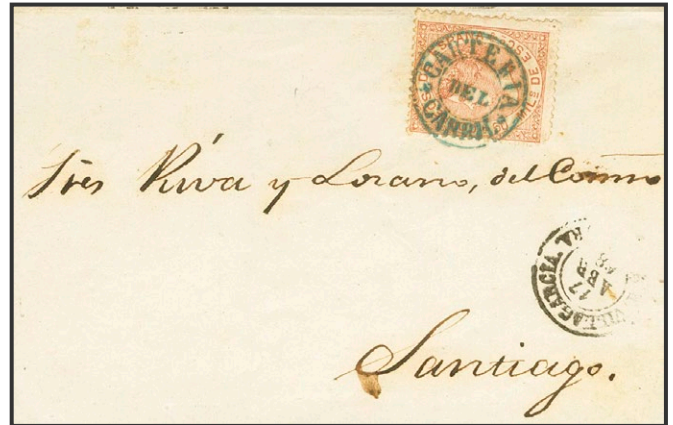 CARTERIA
DEL
CARRIL
DE ESCO
Sres Riva y Lozano, del Comº
VILLAGARCIA
17
ABR
68
Santiago.